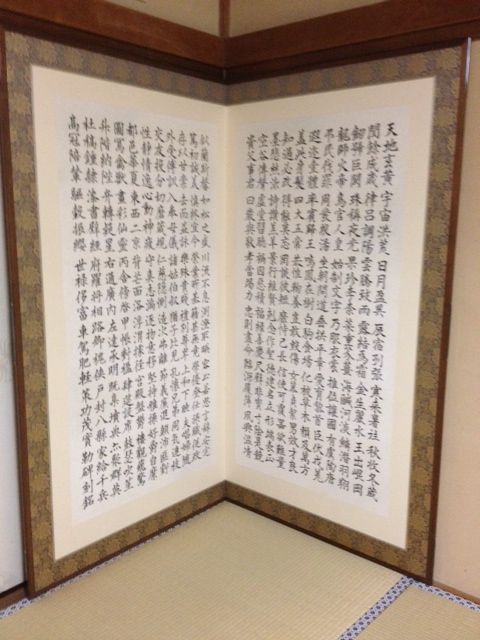 天地玄黃宇宙洪荒日月盈昃辰宿列張寒來暑往秋收冬蔵
閏餘成歳律呂調陽雲騰致雨露結為霜金生麗水玉出崐岡
劔號巨闕珠稱夜光果珍李柰菜重芥薑海鹹河淡鱗潜羽翔
龍師火帝鳥官人皇始制文字乃服衣裳推位讓國有虞陶唐
弔民伐罪周發殷湯坐朝問道垂拱平章愛育黎首臣伏戎羌
遐迩壹體率賓歸王鳴鳳在樹白駒食場化被草木賴及萬方
蓋此身髮四大五常恭惟鞠養豈敢毀傷女慕貞絜男效才良
知過必改得能莫忘罔談彼短靡恃己長信使可覆器欲難量
墨悲絲染詩讚羔羊景行維賢剋念作聖德建名立形端表正
空谷傳聲虛堂習聽禍因惡積福緣善慶尺璧非寶寸陰是競
資父事君曰嚴與敬孝當竭力忠則盡命臨深履薄夙興温凊
似蘭斯馨如松之盛川流不息淵澄取映容止若思言辭安定
篤初誠美慎終宜令榮業所基籍甚無竟學優登仕攝職從政
存以甘棠去而益詠樂殊貴賤禮別尊卑上和下睦夫唱婦随
外受傅訓入奉母儀諸姑伯叔猶子比兒孔懷兄弟同氣連枝
交友投分切磨箴規仁慈隱惻造次弗離節義廉退顛沛匪虧
性靜情逸心動神疲守真志滿逐物意移堅持雅操好爵自縻
都邑華夏東西二京背芒面洛浮渭據涇宮殿盤欝樓觀飛驚
圖寫禽獸畫彩仙靈丙舍傍啓甲帳對楹肆筵設席鼓瑟吹笙
升階納陛弁轉疑星右通廣內左達承明既集墳典亦聚群英
杜稿鍾隷漆書壁經府羅將相路俠槐卿戶封八縣家給千兵
高冠陪輦驅轂振纓世祿侈富車駕肥輕策功茂實勒碑刻銘